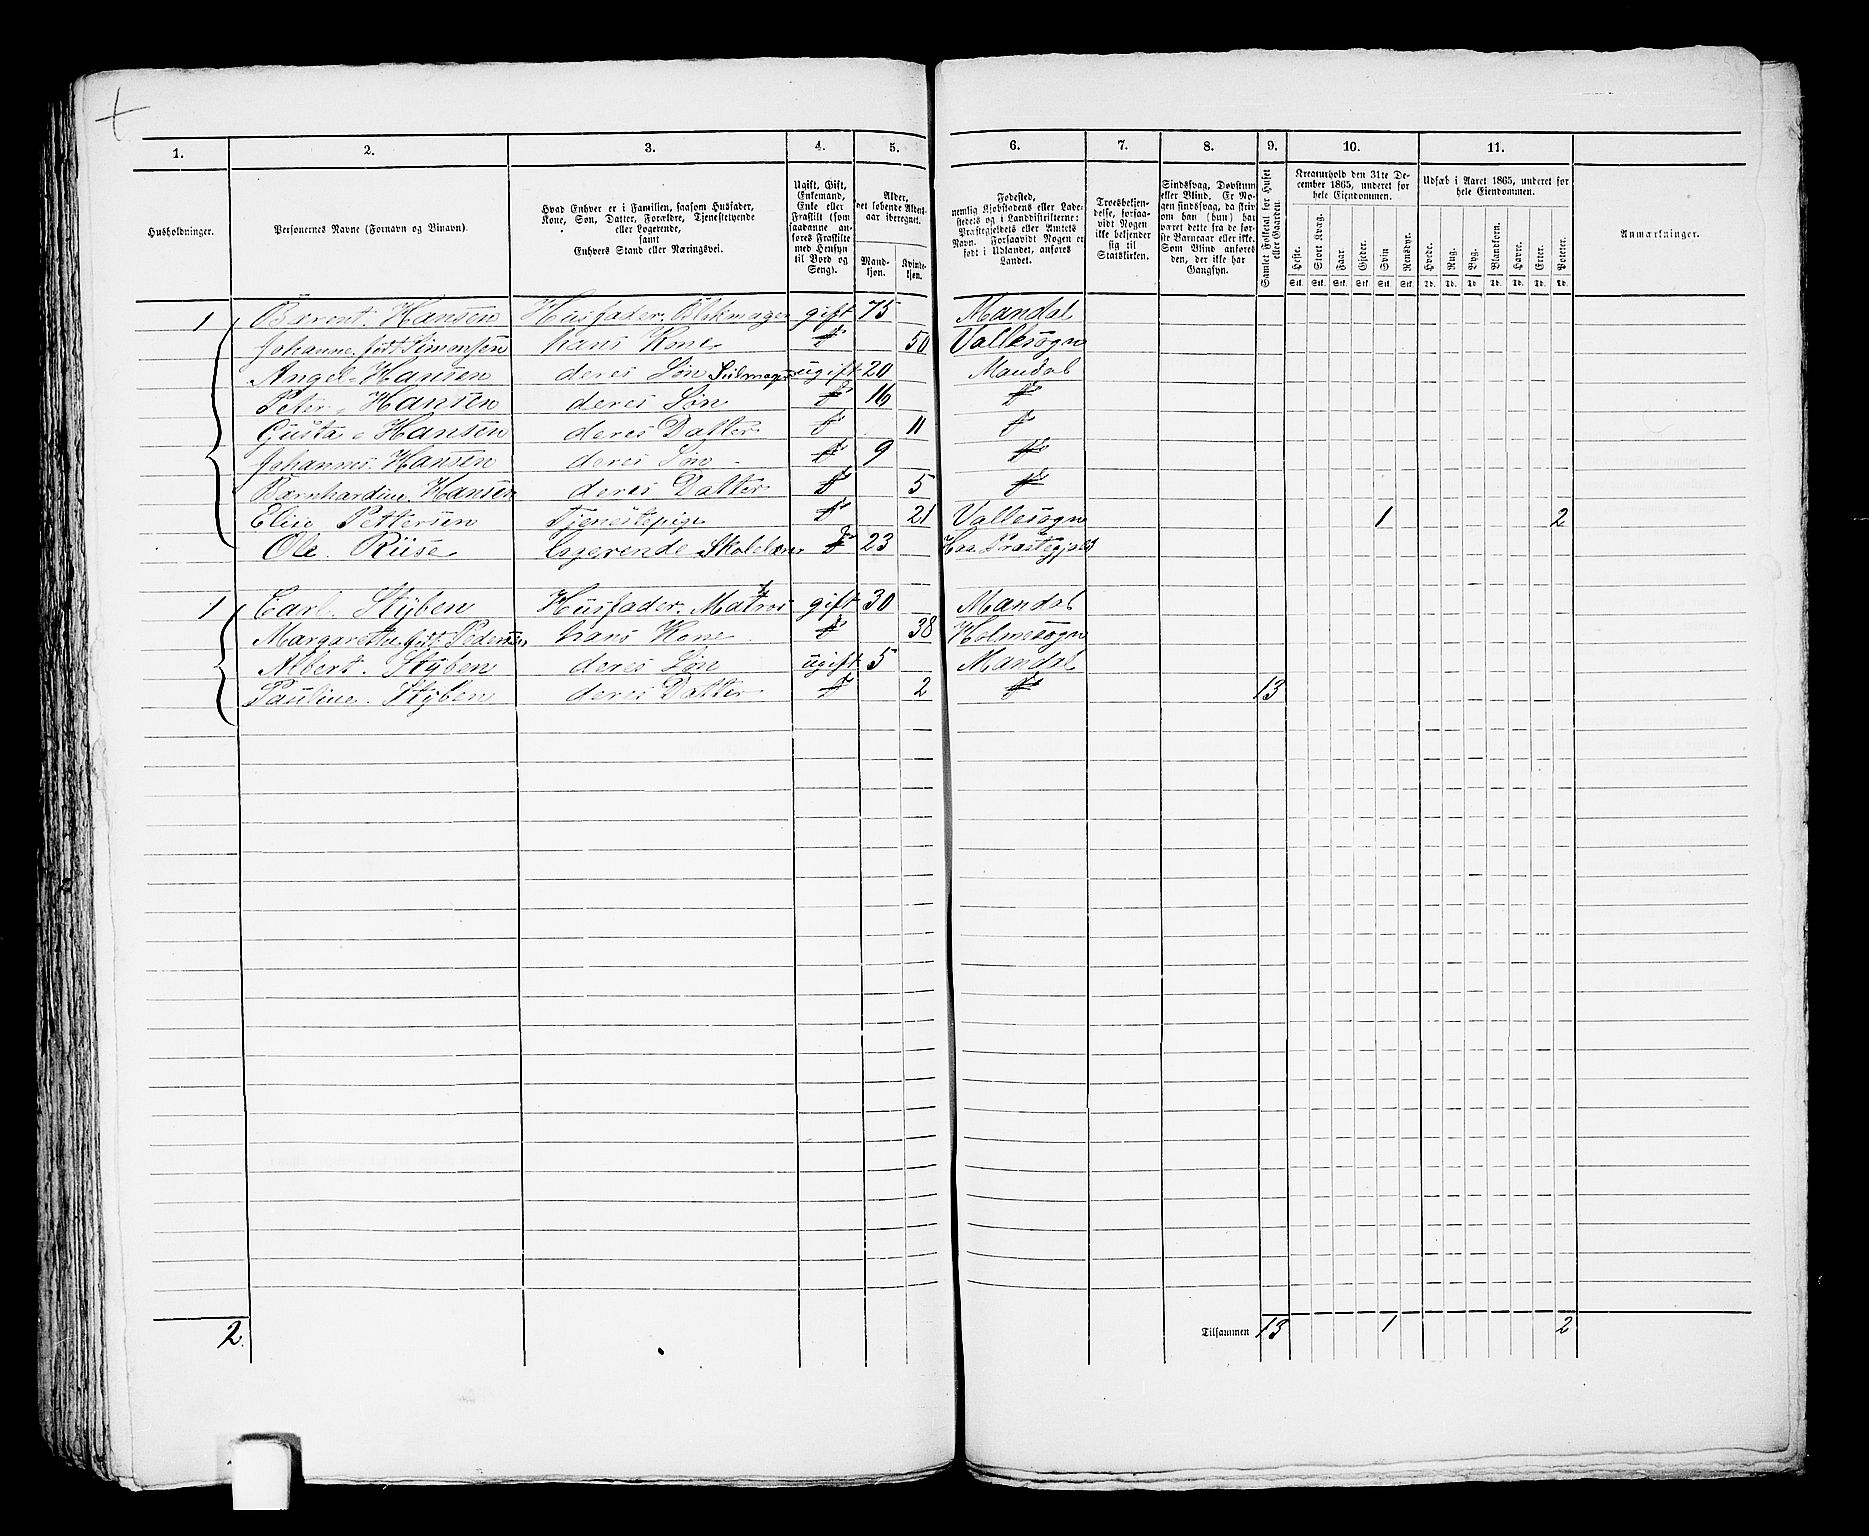 1. 2. 3. 4. 5. 6. 7. 8. 9. 10. 11.
Husholdninger.
Personernes Navne (Fornavn og Binavn).
Hvad Enhver er i Familien, saasom Husfader,
Kone, Søn, Datter, Forældre, Tjenestetyende
eller Logerende,
samt
Enhvers Stand eller Næringsvei.
Ugift, Gift,
Enkemand,
Enke eller
Fraskilt (som
saadanne an-
føres Fraskilte
med Hensyn
til Bord og
Seng).
Alder,
det løbende Alders-
aar iberegnet.
Mand-
kjøn.
Kvinde-
kjøn.
Fødested,
nemlig Kjøbstadens eller Lade-
stedets og i Landdistrikterne:
Præstegjeldets eller Amtets
Navn. Forsaavidt Nogen er
født i Udlandet, anføres
Landet.
Troesbekjen-
delse, forsaa-
vidt Nogen
ikke bekjender
sig til
Statskirken.
Sindssvag, Døvstum
eller Blind. Er No-
gen sindssvag, da skriv
om han (hun) har
været dette fra de før-
ste Barneaar eller ikke.
Som Blind anføres
den, der ikke har
Gangsyn.
Samlet Folketal for Huset
eller Gaarden.
Kreaturhold den 31te De-
cember 1865, underet for
hele Eiendommen.
Heste. Stort Kvæg. Faar Gjeder. Svin Rensdyr.
Stk. Stk. Stk. Stk. Stk. Stk.
Udsæd i Aaret 1865, underet for
hele Eiendommen.
Hvede. Rug. Byg. Blandkorn. Havre. Erter. Poteter.
Td. Td. Td. Td. Td. Td. Td.
Anmærkninger.
1 Barent. Hansen Husfader. Blikmager gift 75 Mandal
Johanne født Simonsen hans Kone 50 Vallesogn
Angel Hansen deres Søn Seilmager ugift 20 Mandal
Peter Hansen deres Søn 16
Gusta Hansen deres Datter 11
Johannes. Hansen deres Søn 9
Bernhardine Hansen deres Datter 5
Elise Pettersen Tjenestepige 21 Vallesogn 1 2
Ole. Riise logerende Skolelærer 23 Præstegjæld
1 Carl. Stÿben Husfader. Matros gift 30 Mandal
Margarethe født Pedersen hans Kone 38 Holmesogn
Albert. Stÿben deres Søn ugift 5 Mandal
Pauline. Stÿben deres Datter 2 13
2. Tilsammen 13 1 2